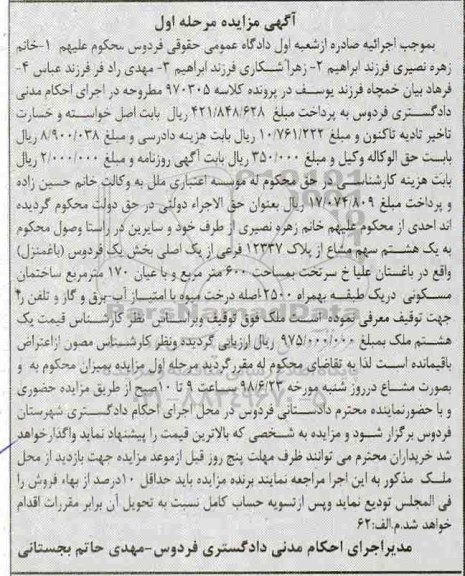 آگهی مزایده مرحله اول
بموجب اجرائیه صادره ازشعبه اول دادگاه عمومی حقوقی فردوس محکوم علیهم ۱-خانم
زهره نصیری فرزند ابراهیم ۲- زهرا شکاری فرزند ابراهیم ۳- مهدی راد فر فرزند عباس ۴-
فرهاد بیان خمچاه فرزند یوسف در پرونده کلاسه ۹۷۰۳۰۵ مطروحه در اجرای احکام مدنی
دادگستری فردوس به پرداخت مبلغ ۴۲۱/۸۴۸/۶۲۸ ریال بابت اصل خواسته و خسارت
تاخیر تادیه تاکنون و مبلغ ۱۰/۷۶۱/۲۲۲ ریال بابت هزینه دادرسی و مبلغ ۸/۹۰۰/۰۳۸ ریال
بابت حق الوکاله وکیل و مبلغ ۳۵۰/۰۰۰ ریال بابت آگهی روزنامه و مبلغ ۲/۰۰۰/۰۰۰ ریال
بابت هزینه کارشناسی در حق محکوم له موسسه اعتباری ملل به وکالت خانم حسین زاده
و پرداخت مبلغ ۱۷/۰۷۴/۸۰۹ ریال بعنوان حق الاجراء دولتی در حق دولت محکوم گردیده
اند احدی از محکوم علیهم خانم زهره نصیری از طرف خود و سایرین در راستا وصول محکوم
به یک هشتم سهم مشاع از پلاک ۱۲۳۳۷ فرعی از یک اصلی بخش یک فردوس (باغمنزل)
واقع در باغستان علیا خ سرتخت بمساحت ۶۰۰ متر مربع و با عیان ۱۷۰ مترمربع ساختمان
مسکونی دریک طبقه بهمراه ۲۵۰۰اصله درخت میوه با امتیاز آب-برق و گاز و تلفن را
جهت توقیف معرفی نموده است ملک فوق توقیف وبراساس نظر کارشناس قیمت یک
هشتم ملک بمبلغ ۹۷۵/۰۰۰/۰۰۰ ریال ارزیابی گردیده ونظر کارشناس مصون ازاعتراض
باقیمانده است لذا به تقاضای محکوم له مقررگردید مرحله اول مزایده بمیزان محکوم به و
بصورت مشاع درروز شنبه مورخه ۹۸/۶/۲۳ ساعت ۹ تا ۱۰صبح از طریق مزایده حضوری
و با حضورنماینده محترم دادستانی فردوس در محل اجرای احکام دادگستری شهرستان
فردوس برگزار شود و مزایده به شخصی که بالاترین قیمت را پیشنهاد نماید واگذارخواهد
شد خریداران محترم می توانند ظرف مهلت پنج روز قبل ازموعد مزایده جهت بازدید از محل
ملک مذکور به این اجرا مراجعه نمایند برنده مزایده باید حداقل ۱۰درصد از بهاء فروش را
فی المجلس تودیع نماید وپس ازتسویه حساب کامل نسبت به تحویل آن برابر مقررات اقدام
خواهد شد.م.الف:۶۲
مدیراجرای احکام مدنی دادگستری فردوس-مهدی حاتم بجستانی